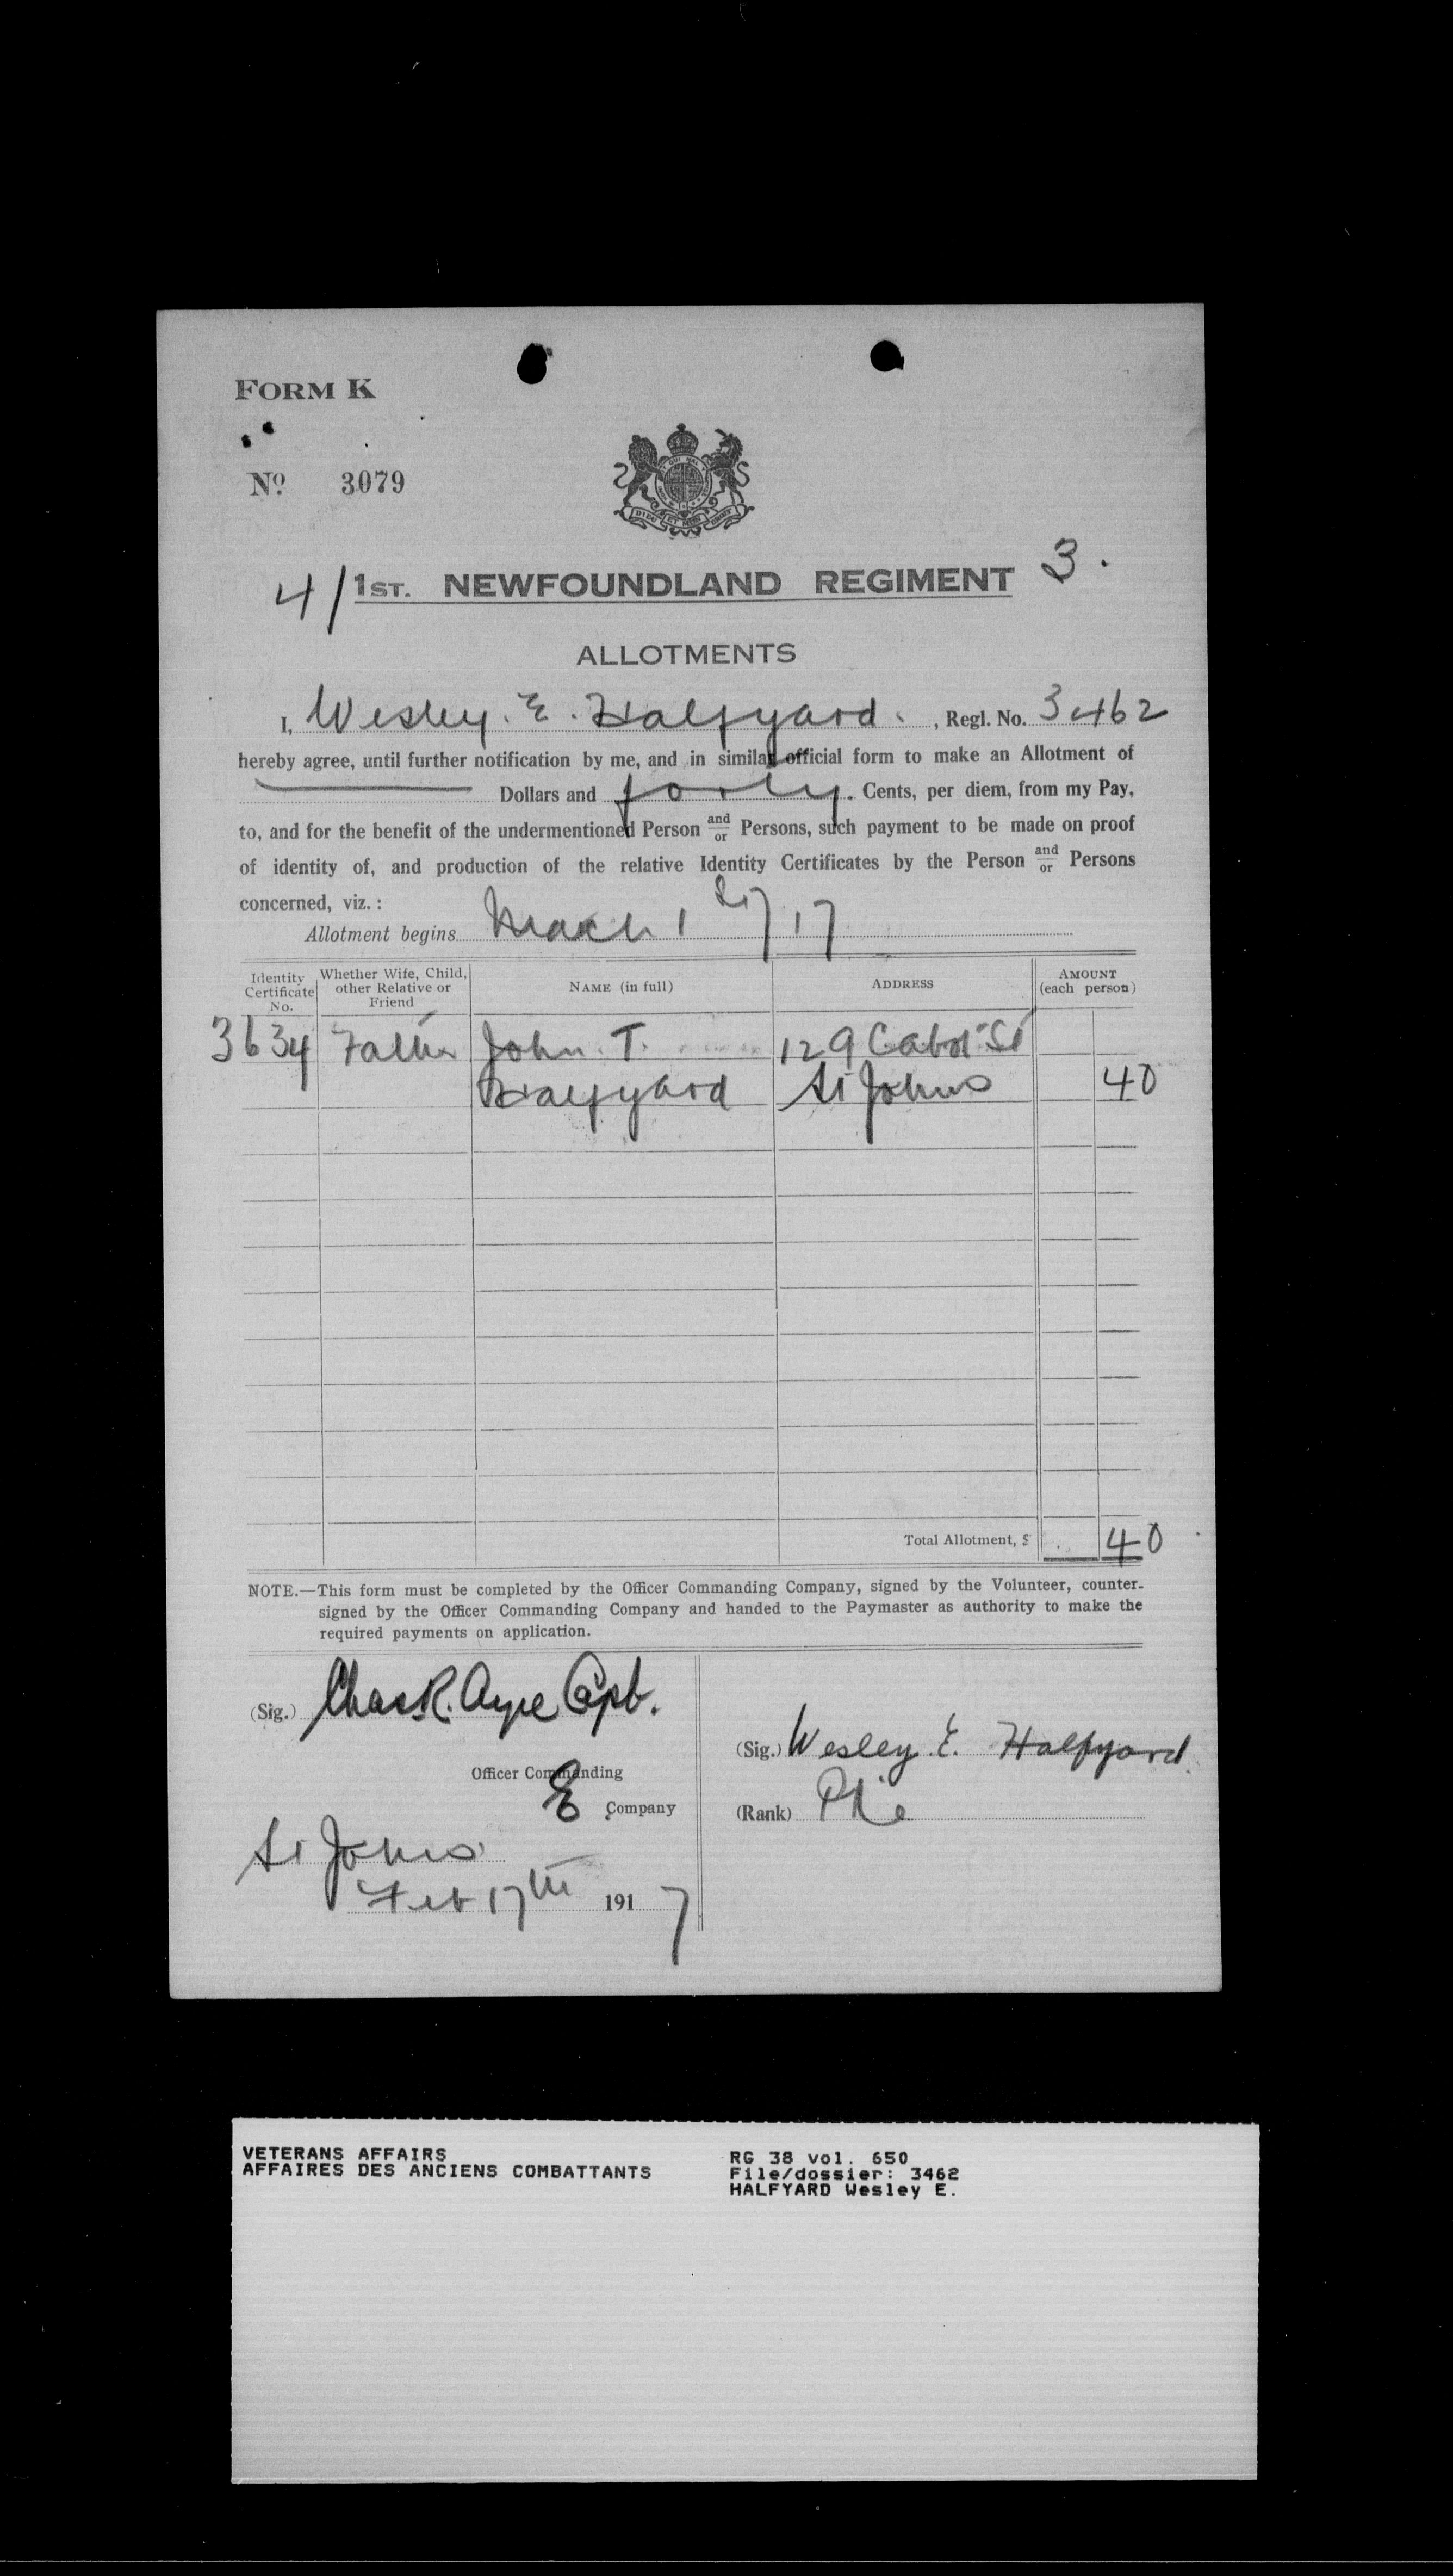 FORM K
No. 3079
4/1ST. NEWFOUNDLAND REGIMENT 3.
ALLOTMENTS
I, Wesley. E. Halfyard. , Regl. No. 3462
hereby agree, until further notification by me, and in similar official form to make an Allotment of
Dollars and forty. Cents, per diem, from my Pay,
to, and for the benefit of the undermentioned Person and/or Persons, such payment to be made on proof
of identity of, and production of the relative Identity Certificates by the Person and/or Persons
concerned, viz. :
Allotment begins March 1st/17
Identity Certificate No. Whether Wife, Child, other Relative or Friend NAME (in full) ADDRESS AMOUNT (each person)
3634 Father John. T. 129 Cabot St
Halfyard St Johns 40
Total Allotment, $ 40
NOTE.—This form must be completed by the Officer Commanding Company, signed by the Volunteer, counter-
signed by the Officer Commanding Company and handed to the Paymaster as authority to make the
required payments on application.
(Sig.) Chas R. Ayre Capt.
Officer Commanding
E Company
St Johns
Feb 17th 1917
(Sig.) Wesley E. Halfyard.
(Rank) Pte
VETERANS AFFAIRS
AFFAIRES DES ANCIENS COMBATTANTS
RG 38 vol. 650
File/dossier: 3462
HALFYARD Wesley E.